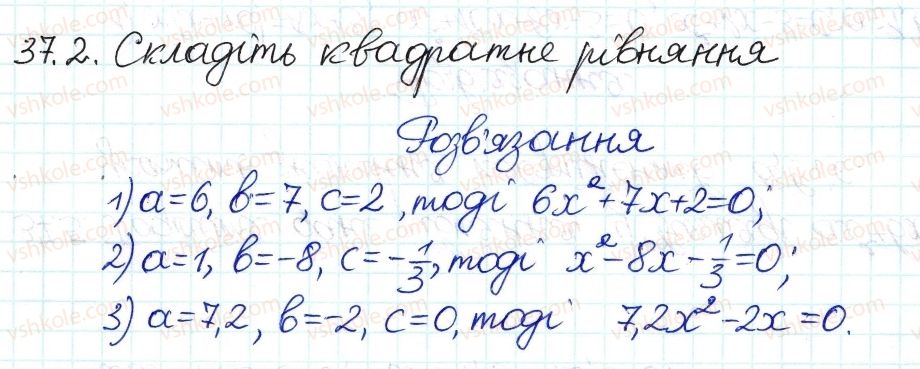 37.2. Складіть квадратне рівняння
Розв'язання
1) a=6, b=7, c=2, тоді 6x²+7x+2=0;
2) a=1, b=-8, c=-1/3, тоді x²-8x-1/3=0;
3) a=7,2, b=-2, c=0, тоді 7,2x²-2x=0.